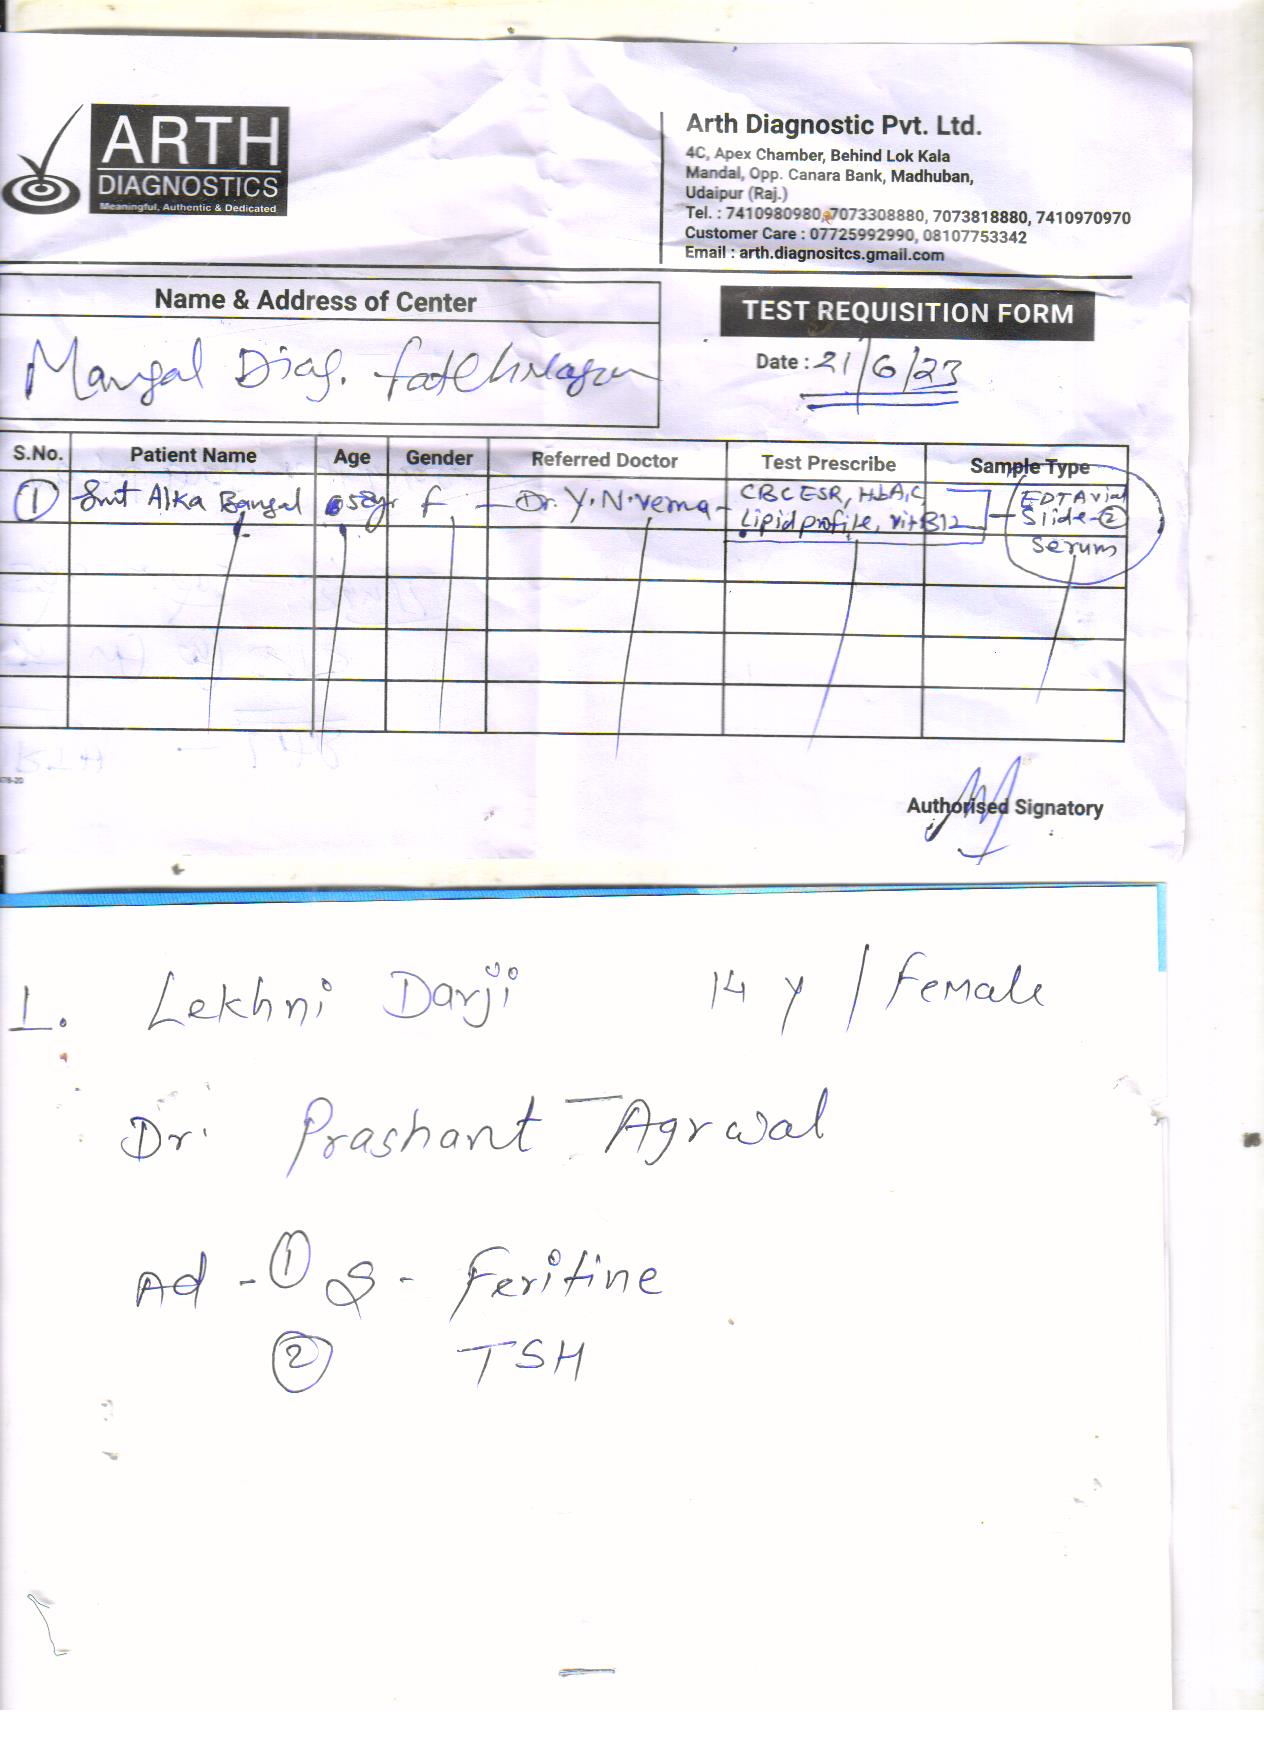 ARTH
DIAGNOSTICS
Meaningful, Authentic & Dedicated
Arth Diagnostic Pvt. Ltd.
4C, Apex Chamber, Behind Lok Kala
Mandal, Opp. Canara Bank, Madhuban,
Udaipur (Raj.)
Tel. : 7410980980, 7073308880, 7073818880, 7410970970
Customer Care : 07725992990, 08107753342
Email : arth.diagnositcs.gmail.com
Name & Address of Center
TEST REQUISITION FORM
Mangal Diag.
Date : 21/6/23
S.No. Patient Name Age Gender Referred Doctor Test Prescribe Sample Type
1 Smt Alka Bangal f Dr. Y.N. Verma CBC ESR, HbA1C EDTA vial
Lipid profile, vit B12 Slide-2
Serum
Authorised Signatory
1. Lekhni Darji 14 y / Female
Dr. Prashant Agrwal
Ad - 1 S - Feritine
2 TSH